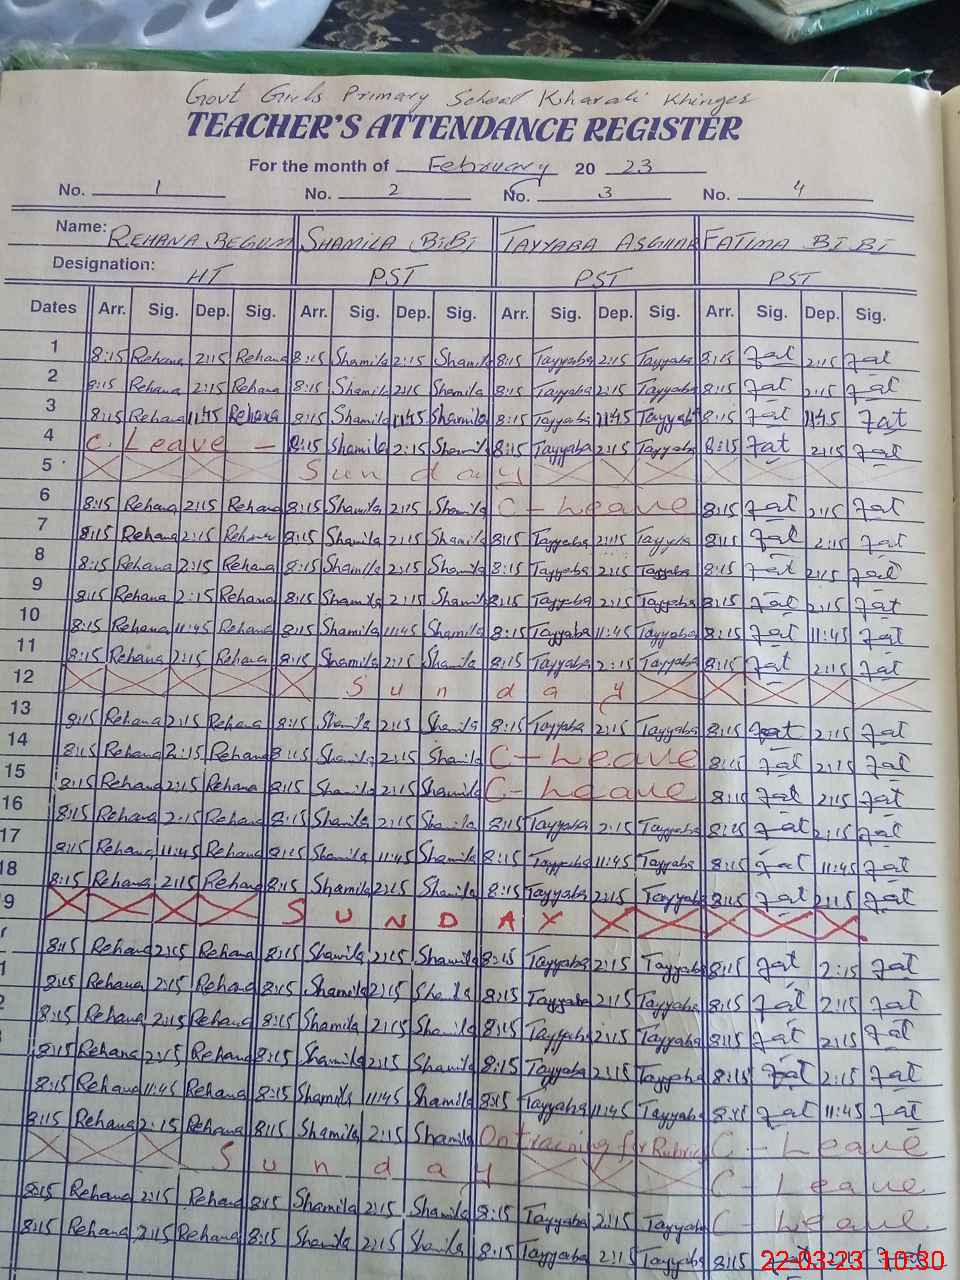 Govt Girls Primary School Kharali Khinger
TEACHER'S ATTENDANCE REGISTER
For the month of February 20 23
No. 1 No. 2 No. 3 No. 4
Name: REHANA BEGUM SHAMILA BiBi TAYYABA ASGHAR FATIMA BIBI
Designation: HT PST PST PST
Dates Arr. Sig. Dep. Sig. Arr. Sig. Dep. Sig. Arr. Sig. Dep. Sig. Arr. Sig. Dep. Sig.
1 8:15 Rehana 2:15 Rehana 8:15 Shamila 2:15 Shamila 8:15 Tayyaba 2:15 Tayyaba 8:15 Fat 2:15 Fat
2 8:15 Rehana 2:15 Rehana 8:15 Shamila 2:15 Shamila 8:15 Tayyaba 2:15 Tayyaba 8:15 Fat 2:15 Fat
3 8:15 Rehana 11:45 Rehana 8:15 Shamila 11:45 Shamila 8:15 Tayyaba 11:45 Tayyaba 8:15 Fat 11:45 Fat
4 C. Leave - 8:15 Shamila 2:15 Shamila 8:15 Tayyaba 2:15 Tayyaba 8:15 Fat 2:15 Fat
5 Sunday
6 8:15 Rehana 2:15 Rehana 8:15 Shamila 2:15 Shamila C-Leave 8:15 Fat 2:15 Fat
7 8:15 Rehana 2:15 Rehana 8:15 Shamila 2:15 Shamila 8:15 Tayyaba 2:15 Tayyaba 8:15 Fat 2:15 Fat
8 8:15 Rehana 2:15 Rehana 8:15 Shamila 2:15 Shamila 8:15 Tayyaba 2:15 Tayyaba 8:15 Fat 2:15 Fat
9 8:15 Rehana 2:15 Rehana 8:15 Shamila 2:15 Shamila 8:15 Tayyaba 2:15 Tayyaba 8:15 Fat 2:15 Fat
10 8:15 Rehana 11:45 Rehana 8:15 Shamila 11:45 Shamila 8:15 Tayyaba 11:45 Tayyaba 8:15 Fat 11:45 Fat
11 8:15 Rehana 2:15 Rehana 8:15 Shamila 2:15 Shamila 8:15 Tayyaba 2:15 Tayyaba 8:15 Fat 2:15 Fat
12 Sunday
13 8:15 Rehana 2:15 Rehana 8:15 Shamila 2:15 Shamila 8:15 Tayyaba 2:15 Tayyaba 8:15 Fat 2:15 Fat
14 8:15 Rehana 2:15 Rehana 8:15 Shamila 2:15 Shamila C-Leave 8:15 Fat 2:15 Fat
15 8:15 Rehana 2:15 Rehana 8:15 Shamila 2:15 Shamila C-Leave 8:15 Fat 2:15 Fat
16 8:15 Rehana 2:15 Rehana 8:15 Shamila 2:15 Shamila 8:15 Tayyaba 2:15 Tayyaba 8:15 Fat 2:15 Fat
17 8:15 Rehana 11:45 Rehana 8:15 Shamila 11:45 Shamila 8:15 Tayyaba 11:45 Tayyaba 8:15 Fat 11:45 Fat
18 8:15 Rehana 2:15 Rehana 8:15 Shamila 2:15 Shamila 8:15 Tayyaba 2:15 Tayyaba 8:15 Fat 2:15 Fat
9 SUNDAY
8:15 Rehana 2:15 Rehana 8:15 Shamila 2:15 Shamila 8:15 Tayyaba 2:15 Tayyaba 8:15 Fat 2:15 Fat
1 8:15 Rehana 2:15 Rehana 8:15 Shamila 2:15 Shamila 8:15 Tayyaba 2:15 Tayyaba 8:15 Fat 2:15 Fat
2 8:15 Rehana 2:15 Rehana 8:15 Shamila 2:15 Shamila 8:15 Tayyaba 2:15 Tayyaba 8:15 Fat 2:15 Fat
8:15 Rehana 2:15 Rehana 8:15 Shamila 2:15 Shamila 8:15 Tayyaba 2:15 Tayyaba 8:15 Fat 2:15 Fat
8:15 Rehana 11:45 Rehana 8:15 Shamila 11:45 Shamila 8:15 Tayyaba 11:45 Tayyaba 8:15 Fat 11:45 Fat
8:15 Rehana 2:15 Rehana 8:15 Shamila 2:15 Shamila On training for Rubric C-Leave
Sunday C-Leave
8:15 Rehana 2:15 Rehana 8:15 Shamila 2:15 Shamila 8:15 Tayyaba 2:15 Tayyaba C-Leave
8:15 Rehana 2:15 Rehana 8:15 Shamila 2:15 Shamila 8:15 Tayyaba 2:15 Tayyaba 8:15 Fat 2:15 Fat
22-03-23 10:30